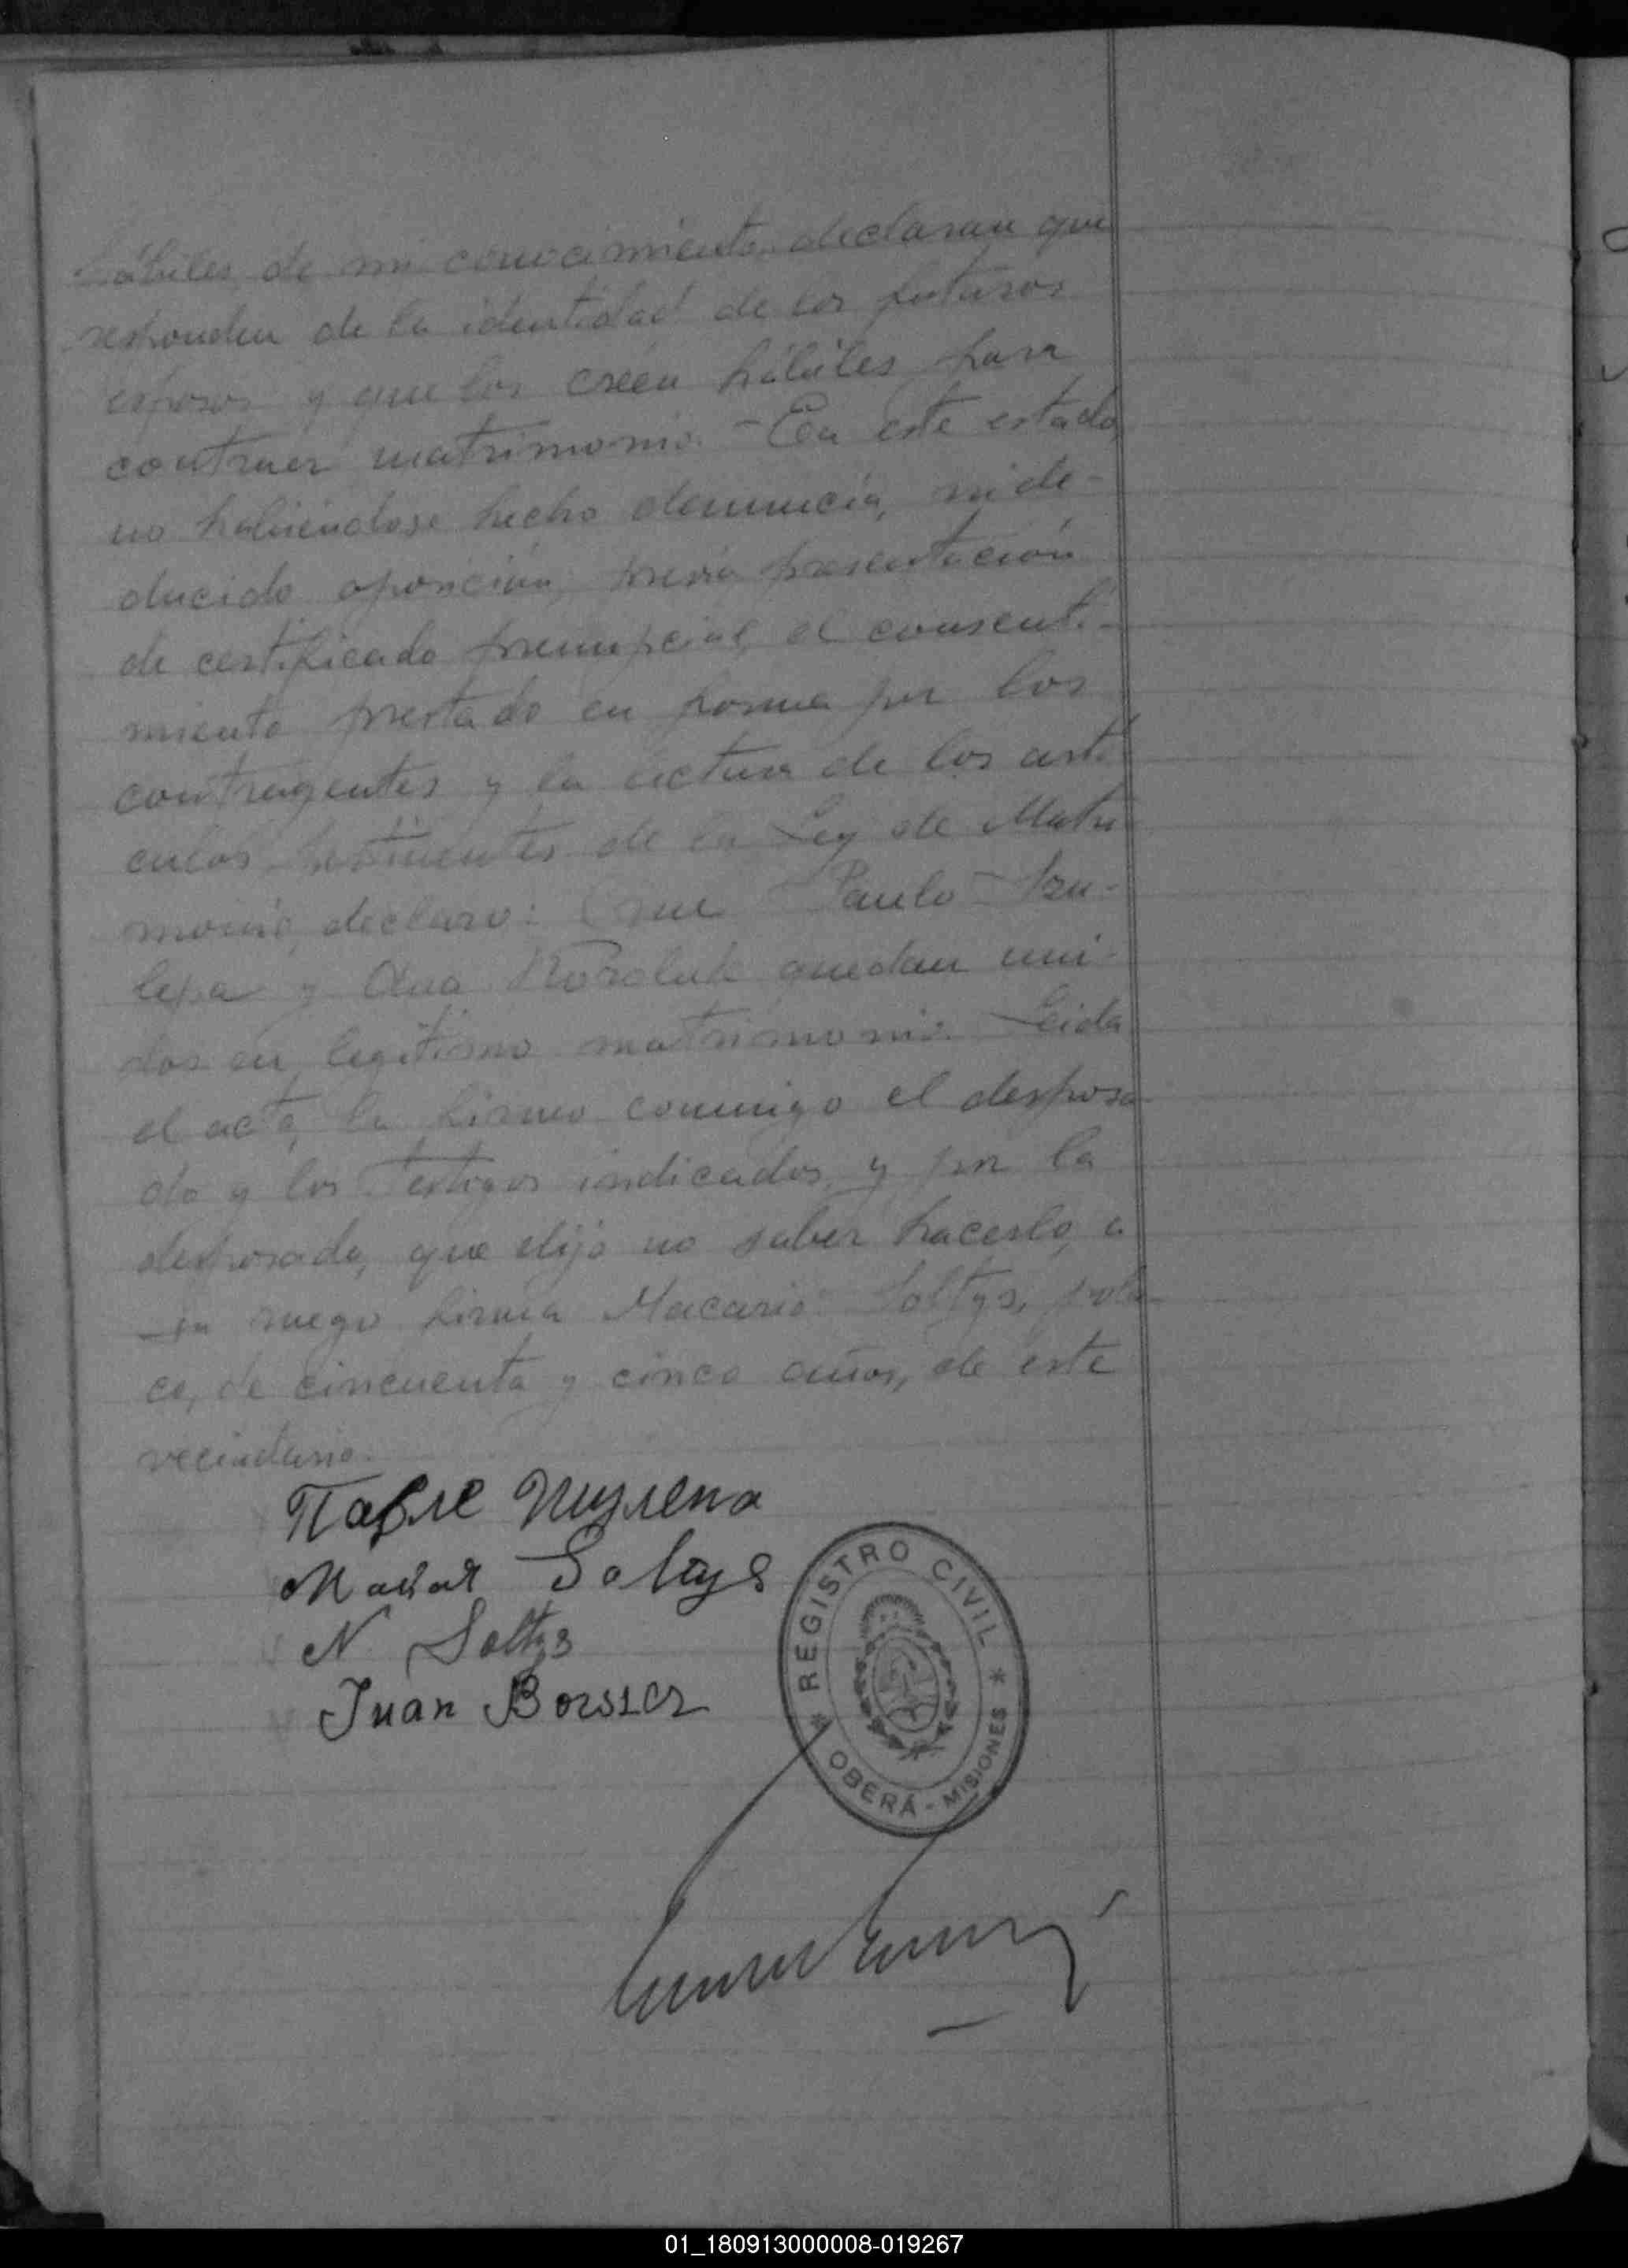 hábiles de mi conocimiento, declaran que
responden de la identidad de los futuros
esposos y que los creen hábiles para
contraer matrimonio. - En este estado,
no habiéndose hecho denuncia, ni de-
ducido oposición, previa presentación
de certificado prenupcial, el consenti-
miento prestado en forma por los
contrayentes y la lectura de los artí
culos pertinentes de la Ley de Matri
monio, declaro: Que Paulo
y Ana quedan uni-
dos en legítimo matrimonio. Leida
el acta, la firmo conmigo el desposa
do y los testigos indicados, y por la
desposada, que dijo no saber hacerlo, a
su ruego firma Macario Soltys, pola
co, de cincuenta y cinco años, de este
vecindario.
Soltys
N. Soltys
Juan
REGISTRO CIVIL
OBERÁ - MISIONES
01_180913000008-019267